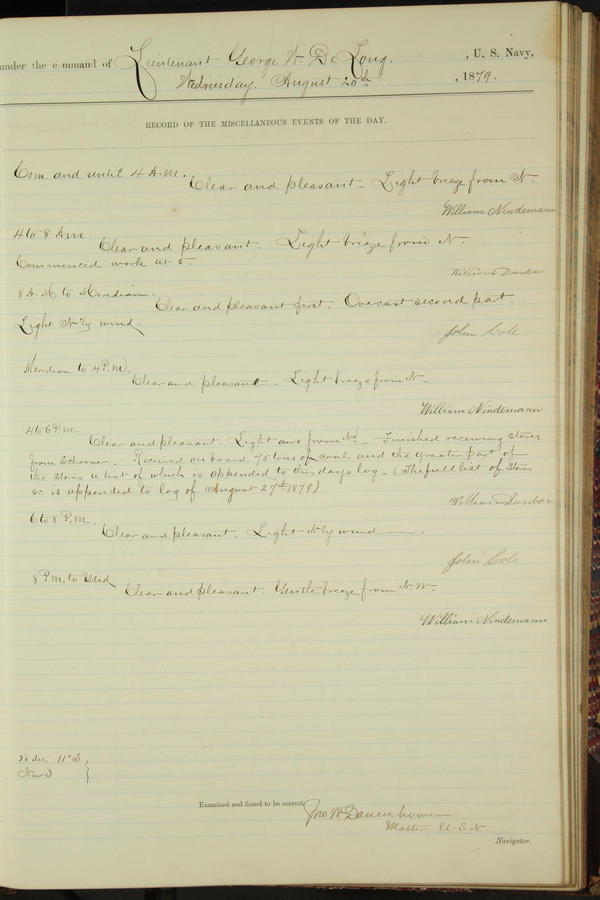 under the command of Lieutenant George W. De Long. , U. S. Navy,
Wednesday, August 20th , 1879.
RECORD OF THE MISCELLANEOUS EVENTS OF THE DAY.
Com. and until 4 A.M.
Clear and pleasant - Light breeze from N.
William Nindemann
4 to 8 A.M.
Clear and pleasant. Light breeze from N.
Commenced work at 5.
William Dunbar
8 A.M. to Meridian.
Clear and pleasant first. Overcast second part.
Light N'ly wind.
John Cole
Meridian to 4 P.M.
Clear and pleasant - Light breeze from N -
William Nindemann
4 to 6 P.M.
Clear and pleasant. Light airs from Nd - Finished receiving stores
from Schooner - Received on board 75 tons of coal and the greater part of
the stores a list of which is appended to this days log - (The full list of stores
&c is appended to log of August 27th 1879)
William Dunbar
6 to 8 P.M.
Clear and pleasant. Light N'ly wind .
John Cole
8 P.M. to Mid
Clear and pleasant. Gentle breeze from N.W.
William Nindemann
dec 11°
Examined and found to be correct.
Jno W. Danenhower
Master U.S.N.
Navigator.